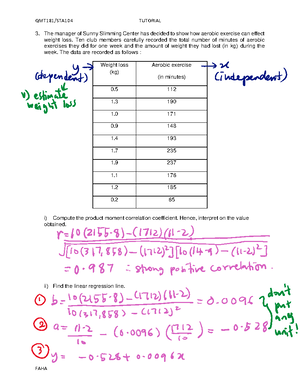 QMT181/STA104 TUTORIAL
3. The manager of Sunny Slimming Center has decided to show how aerobic exercise can effect
weight loss. Ten club members carefully recorded the total number of minutes of aerobic
exercises they did for one week and the amount of weight they had lost (in kg) during the
week. The data are recorded as follows :
y Weight loss Aerobic exercise x
(dependent) (kg) (in minutes) (independent)
v) estimate weight loss
0.5 112
1.3 190
1.0 171
0.9 148
1.4 193
1.7 235
1.9 237
1.1 176
1.2 185
0.2 65
i) Compute the product moment correlation coefficient. Hence, interpret on the value
obtained.
r = 10(2155.8) - (1712)(11.2)
√[10(317,858) - (1712)²][10(14.9) - (11.2)²]
= 0.987 - strong positive correlation.
ii) Find the linear regression line.
① b = 10(2155.8) - (1712)(11.2) = 0.0096
10(317,858) - (1712)²
② a = 11.2 - (0.0096)(1712) = -0.528
10 10
③ y = -0.528 + 0.0096x
don't
put
any
unit!
FAHA